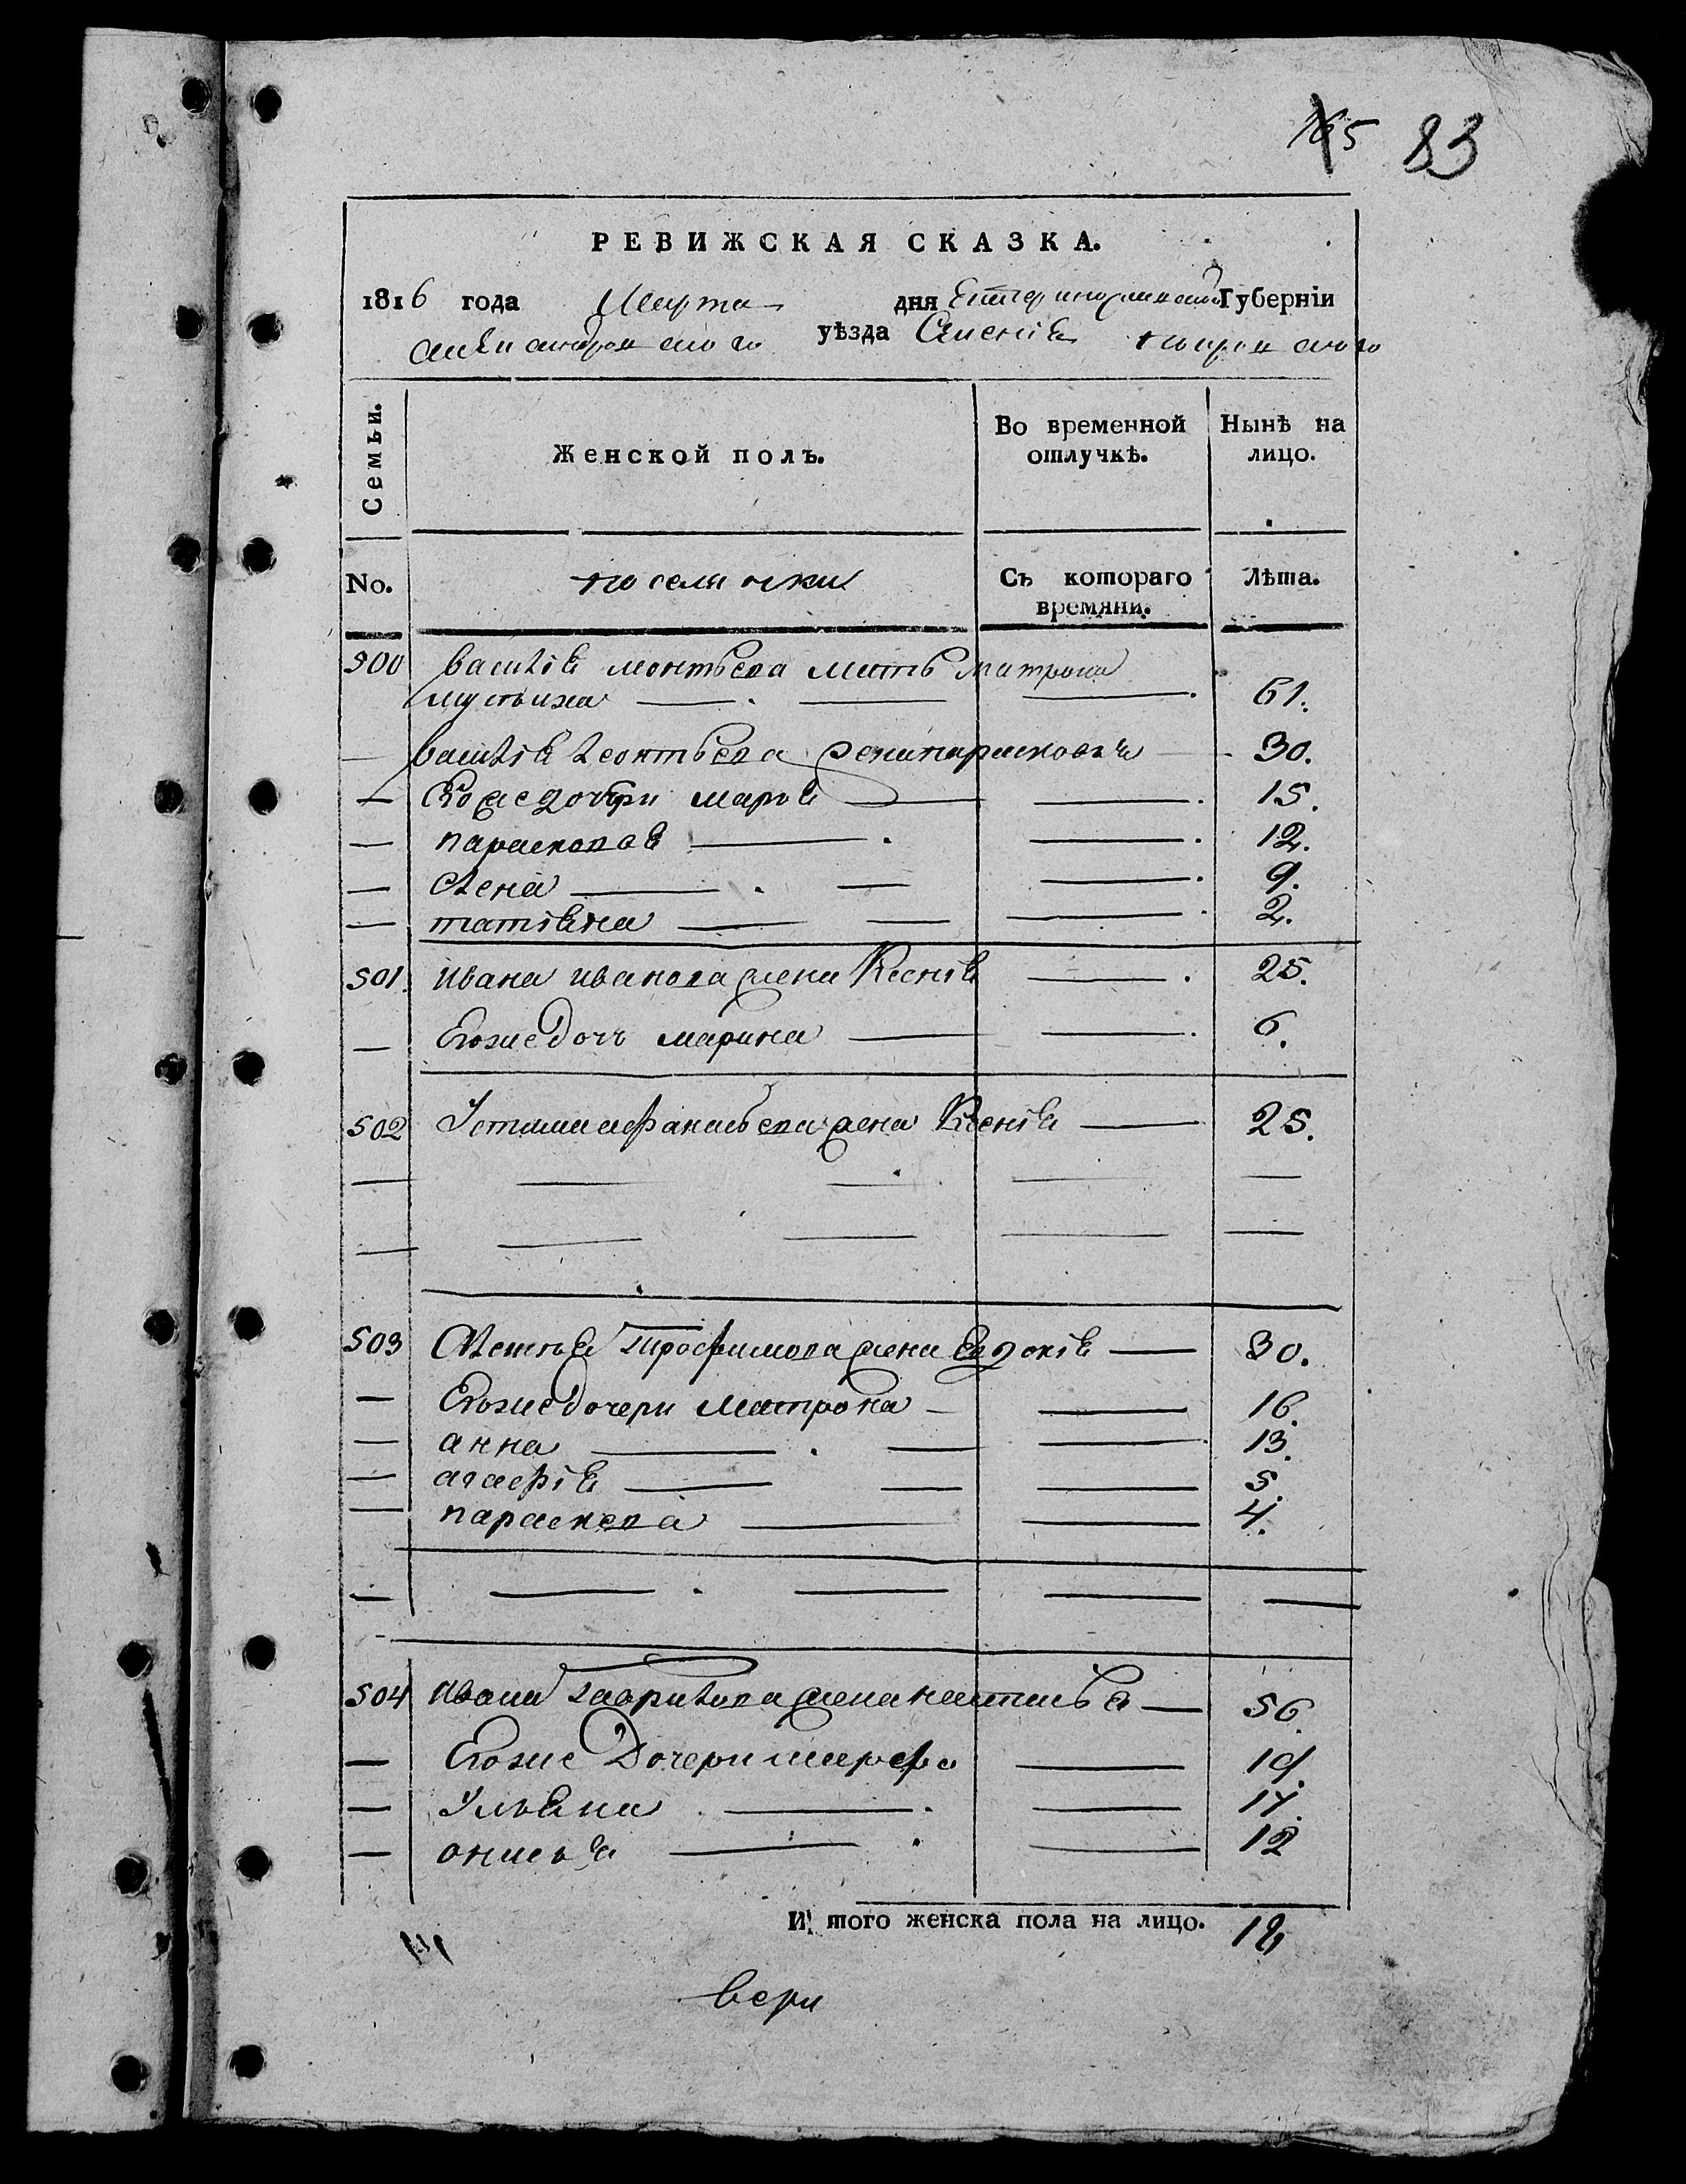 83
РЕВИЖСКАЯ СКАЗКА.
1816 года Марта дня Екатеринославской Губерніи
александровского уѣзда Селенія покровского
Семьи.
Женской полъ.
Во временной отлучкѣ.
Нынѣ на лицо.
No.
поселянки
Съ котораго времяни.
Лѣта.
500 василія леонтьева мать матрона
61.
— василія леонтьева жена парасковья — 30.
— Его же дочери марья — — 15.
— парасковья — — 12.
— елена — — — 9.
— татіяна — — — 2.
501. ивана иванова жена Ксенія — 25.
— Его же Дочь марина — — 6.
502 Устима афанасьева жена Ксенія — 25.
— — — — —
— — — — —
503 Алексѣя трофимова жена Евдокія — 30.
— Его же Дочери матрона — — 16.
— анна — — — 13.
— агафія — — — 5.
— параскева — — 4.
— — — — —
504 ивана гаврилова жена наталья — 56.
— Его же Дочери марфа — 19.
— Ульяна — — 17.
— онисья — — 12
И того женска пола на лицо. 18